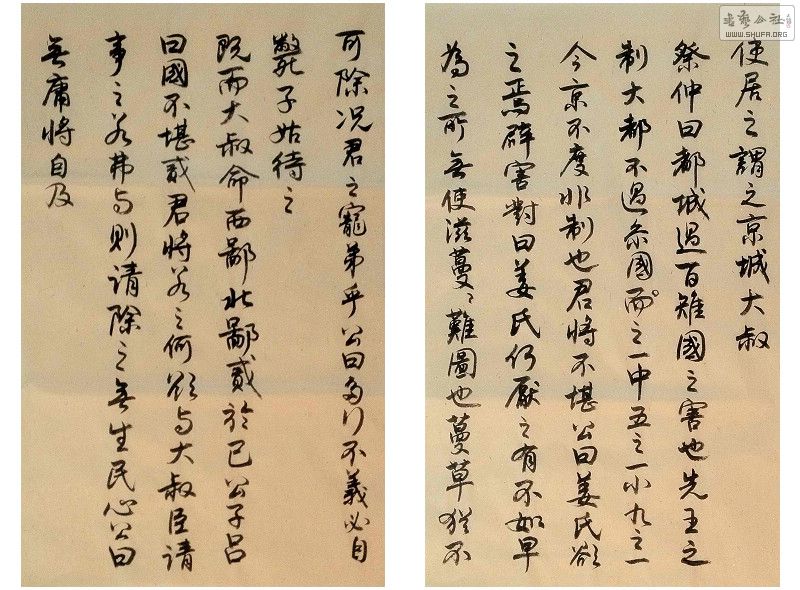 使居之謂之京城大叔
祭仲曰都城過百雉國之害也先王之
制大都不過叅國而之一中五之一小九之一
今京不度非制也君將不堪公曰姜氏欲
之焉辟害對曰姜氏何厭之有不如早
為之所無使滋蔓〻難圖也蔓草猶不
可除況君之寵弟乎公曰多行不義必自
斃子姑待之
既而大叔命西鄙北鄙貳於己公子呂
曰國不堪貳君將若之何欲与大叔臣請
事之若弗与則請除之無生民心公曰
無庸將自及
WWW.SHUFA.ORG